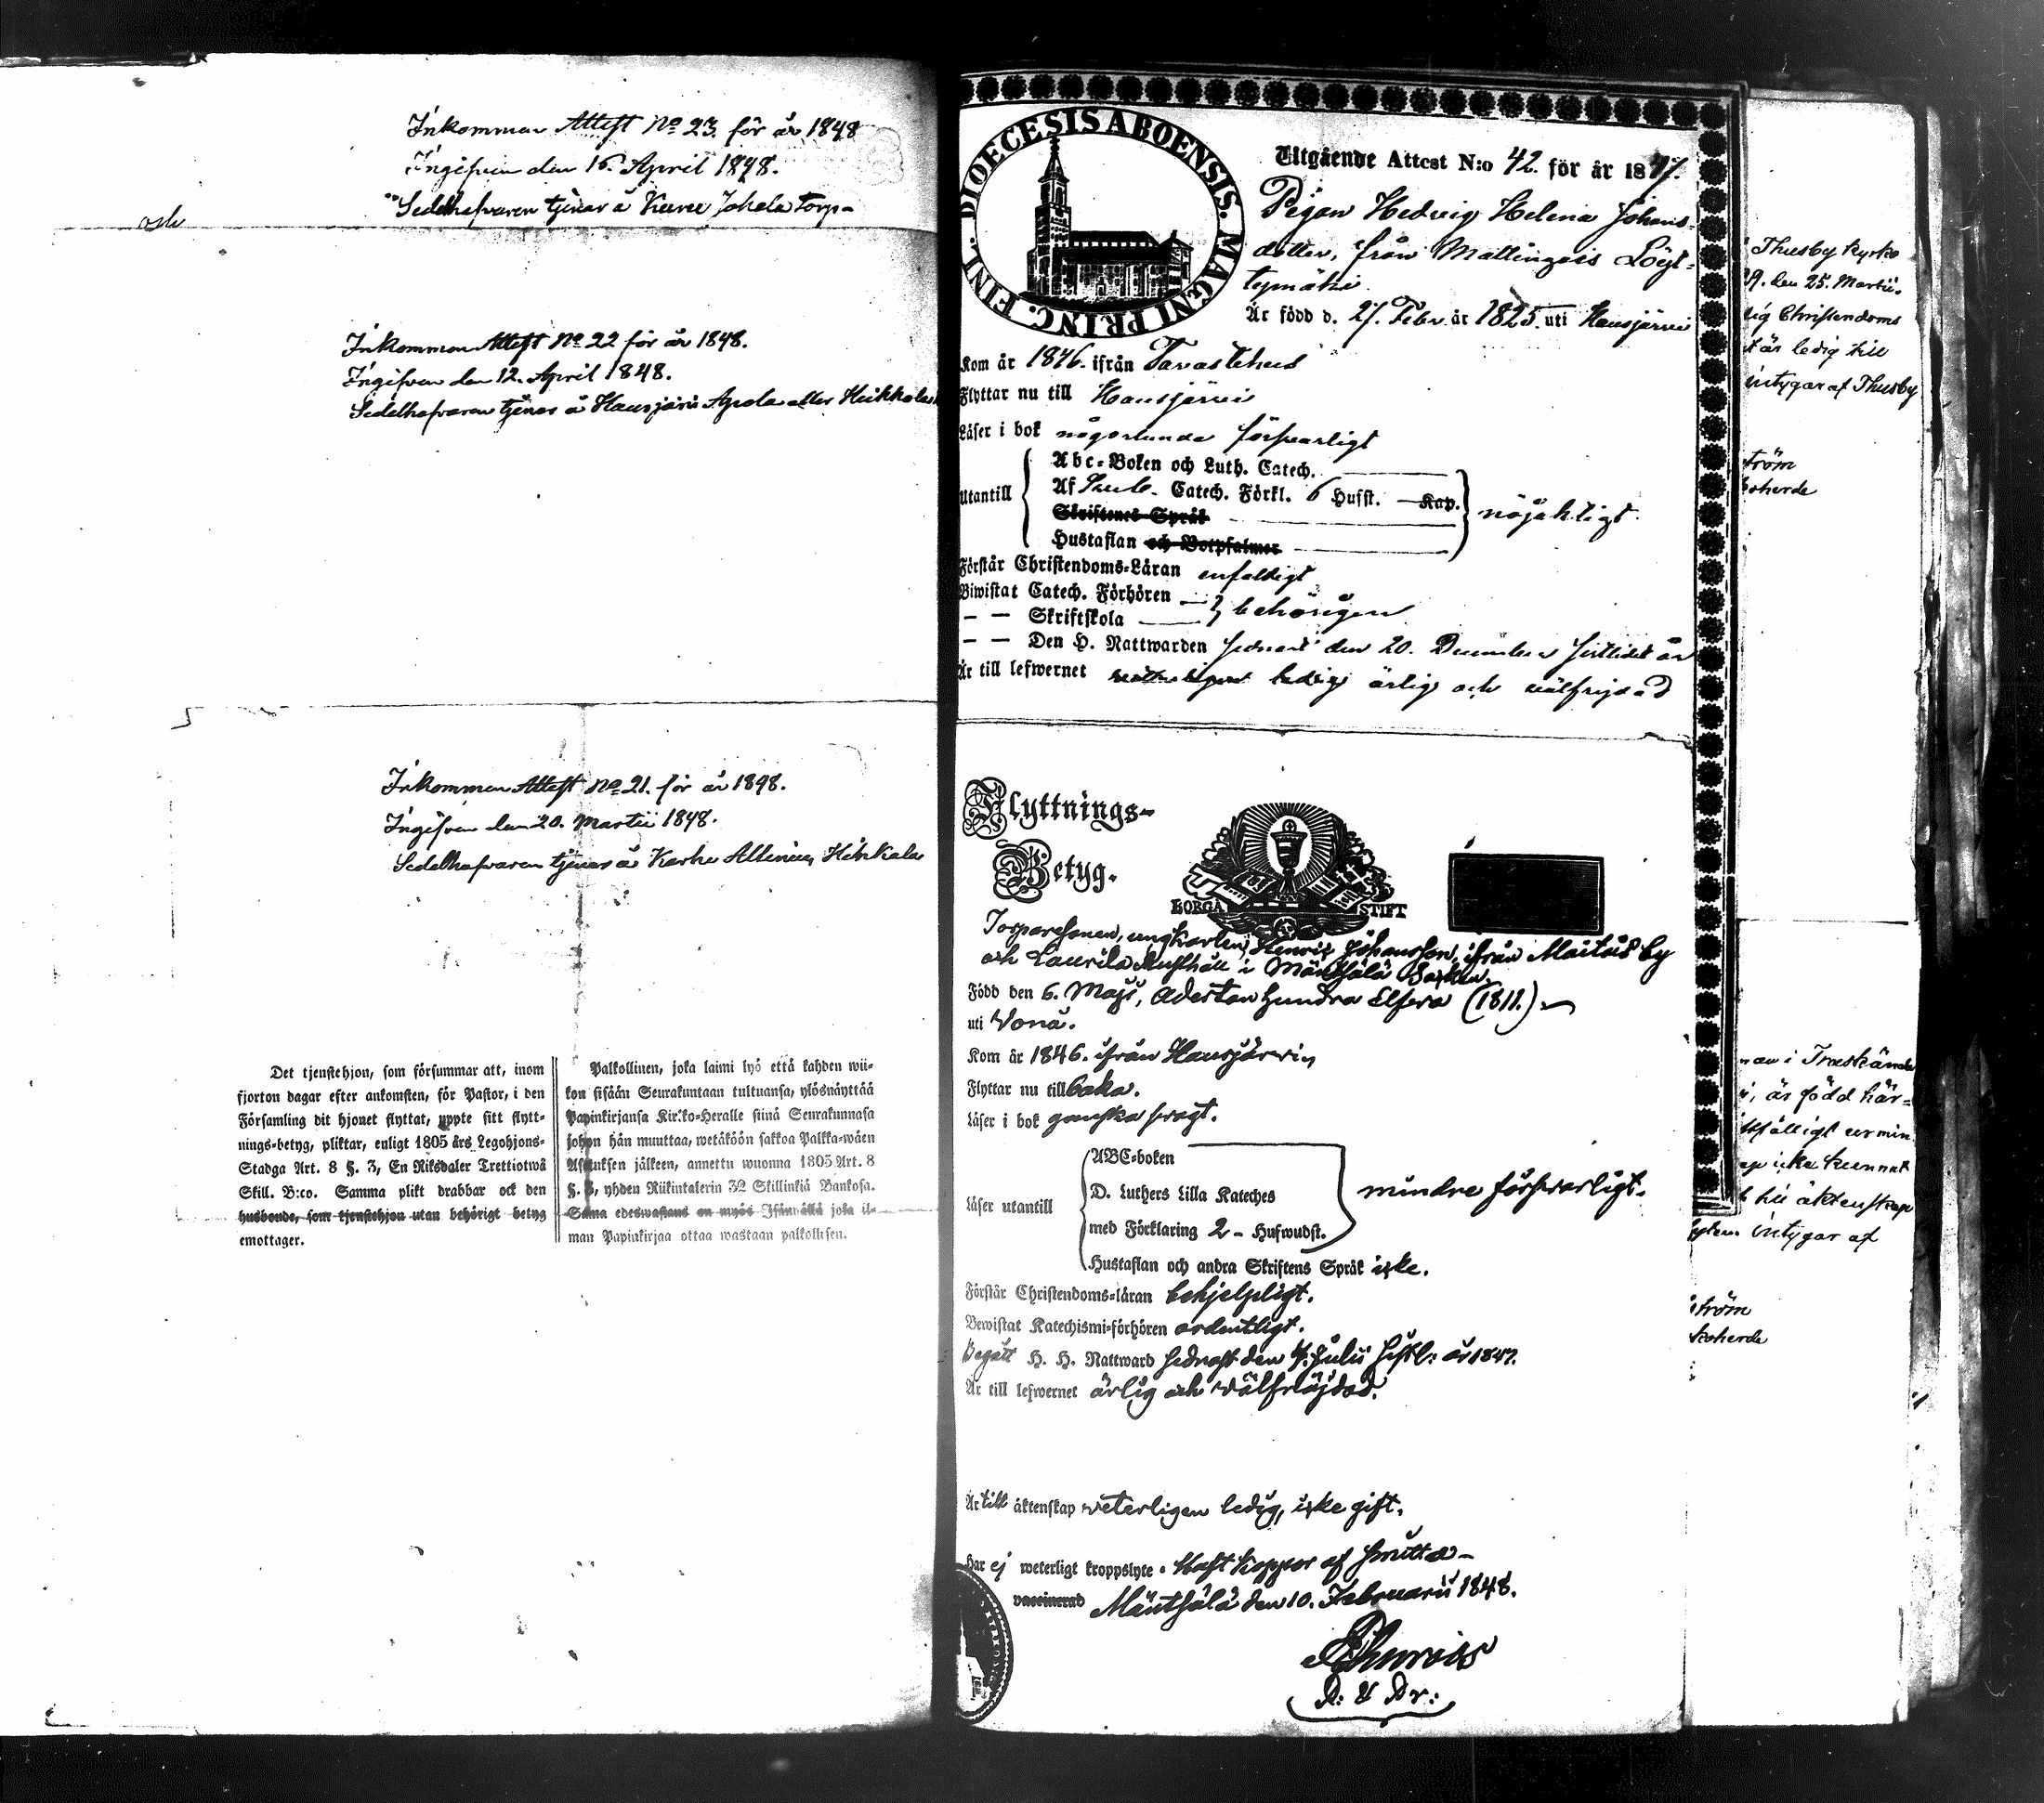 Inkommen Attest No 23 för år 1848
Ingifven den 16. April 1848.
Sedelhafvaren tjenar å Kuru Jokela torp-
och
Inkommen Attest No 22 för år 1848.
Ingifven den 12. April 1848.
Sedelhafvaren tjenar å Hausjärvi Apola eller Heikkola
Inkommen Attest No 21. för år 1848.
Ingifven den 20. Martii 1848.
Sedelhafvaren tjenar å Karhu Hirkala
Det tjenstehjon, som försummar att, inom
fjorton dagar efter ankomsten, för Pastor, i den
Församling dit hjonet flyttat, uppte sitt flytt-
nings-betyg, pliktar, enligt 1805 års Legohjons-
Stadga Art. 8 §. 3, En Riksdaler Trettiotwå
Skill. B:co. Samma plikt drabbar ock den
husbonde, som tjenstehjon utan behörigt betyg
emottager.
Palkollinen, joka laimi lyö että kahden wii-
kon sisään Seurakuntaan tultuansa, ylösnäyttää
Papinkirjansa Kirkko-Heralle siinä Seurakunnasa
johon hän muuttaa, wetäköön sakkoa Palkka-wäen
Asetuksen jälkeen, annettu wuonna 1805 Art. 8
§. 3, yhden Riikintalerin 32 Skillinkiä Bankosa.
Sama edeswastaus on myös Isännällä joka il-
man Papinkirjaa ottaa wastaan palkollisen.
DIOECESIS ABOENSIS. MAGNI PRINC. FINL.
Utgående Attest N:o 42. för år 1847.
Pigan Hedvig Helena Johans-
dotter, från Mattingois Löyt-
tymäki
Är född d. 27. Febr. år 1825. uti Hausjärvi
Kom år 1846. ifrån Tavastehus
Flyttar nu till Hausjärvi
Läser i bok någorlunda försvarligt
Utantill
Abc-Boken och Luth. Catech.
Af Catech. Förkl. 6 Hufst. Kap.
Skriftenes Språk
Hustaflan och Botpsalmer
nöjaktigt
Förstår Christendoms-Läran enfaldigt
Biwistat Catech. Förhören
— — Skriftskola
behörigen
— — Den H. Nattwarden sednast den 20. December sistlidet år
Är till lefwernet ledig ärlig och välfrejdad
Flyttnings-
Betyg.
BORGÅ STIFT
Torparesonen, ungkarlen, Henric Johansson, ifrån Maitois by
och Laurila Rusthåll i Mäntsälä Socken.
Född den 6. Maji, Adertonhundra Elfva (1811.)
uti Vonå.
Kom år 1846. ifrån Hausjärvi,
Flyttar nu tillbaka.
Läser i bok ganska svagt.
Läser utantill
ABC-boken
D. Luthers Lilla Kateches
med Förklaring 2 - Hufwudst.
mindre försvarligt.
Hustaflan och andra Skriftens Språk icke.
Förstår Christendoms-läran behjelpligt.
Bewistat Katechismi-förhören ordentligt.
Begått H. H. Nattward sednast den 4. Julii sistl: år 1847.
Är till lefwernet ärlig och välfräjdad.
Är till äktenskap veterligen ledig, icke gift.
Har ej weterligt kroppslyte. Haft koppor af smitta-
vaccinerad Mäntsälä den 10. Februarii 1848.
Thusby kyrko
den 25. Martii.
Christendoms
är ledig till
intygar af Thusby
ström
koherde
i Träskända
är född här-
icke kunnat
till äktenskap
intygar af
ström
koherde